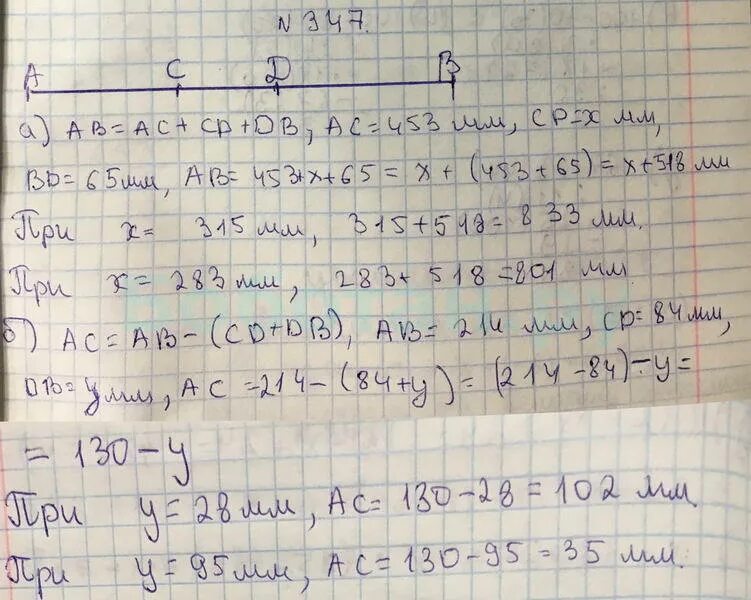 N 347.
A C D B
а) AB = AC + CD + DB, AC = 453 мм, CD = x мм,
BD = 65 мм, AB = 453 + x + 65 = x + (453 + 65) = x + 518 мм
При x = 315 мм, 315 + 518 = 833 мм.
При x = 283 мм, 283 + 518 = 801 мм
б) AC = AB − (CD + DB), AB = 214 мм, CD = 84 мм,
DB = y мм, AC = 214 − (84 + y) = (214 − 84) − y =
= 130 − y
При y = 28 мм, AC = 130 − 28 = 102 мм
При y = 95 мм, AC = 130 − 95 = 35 мм.